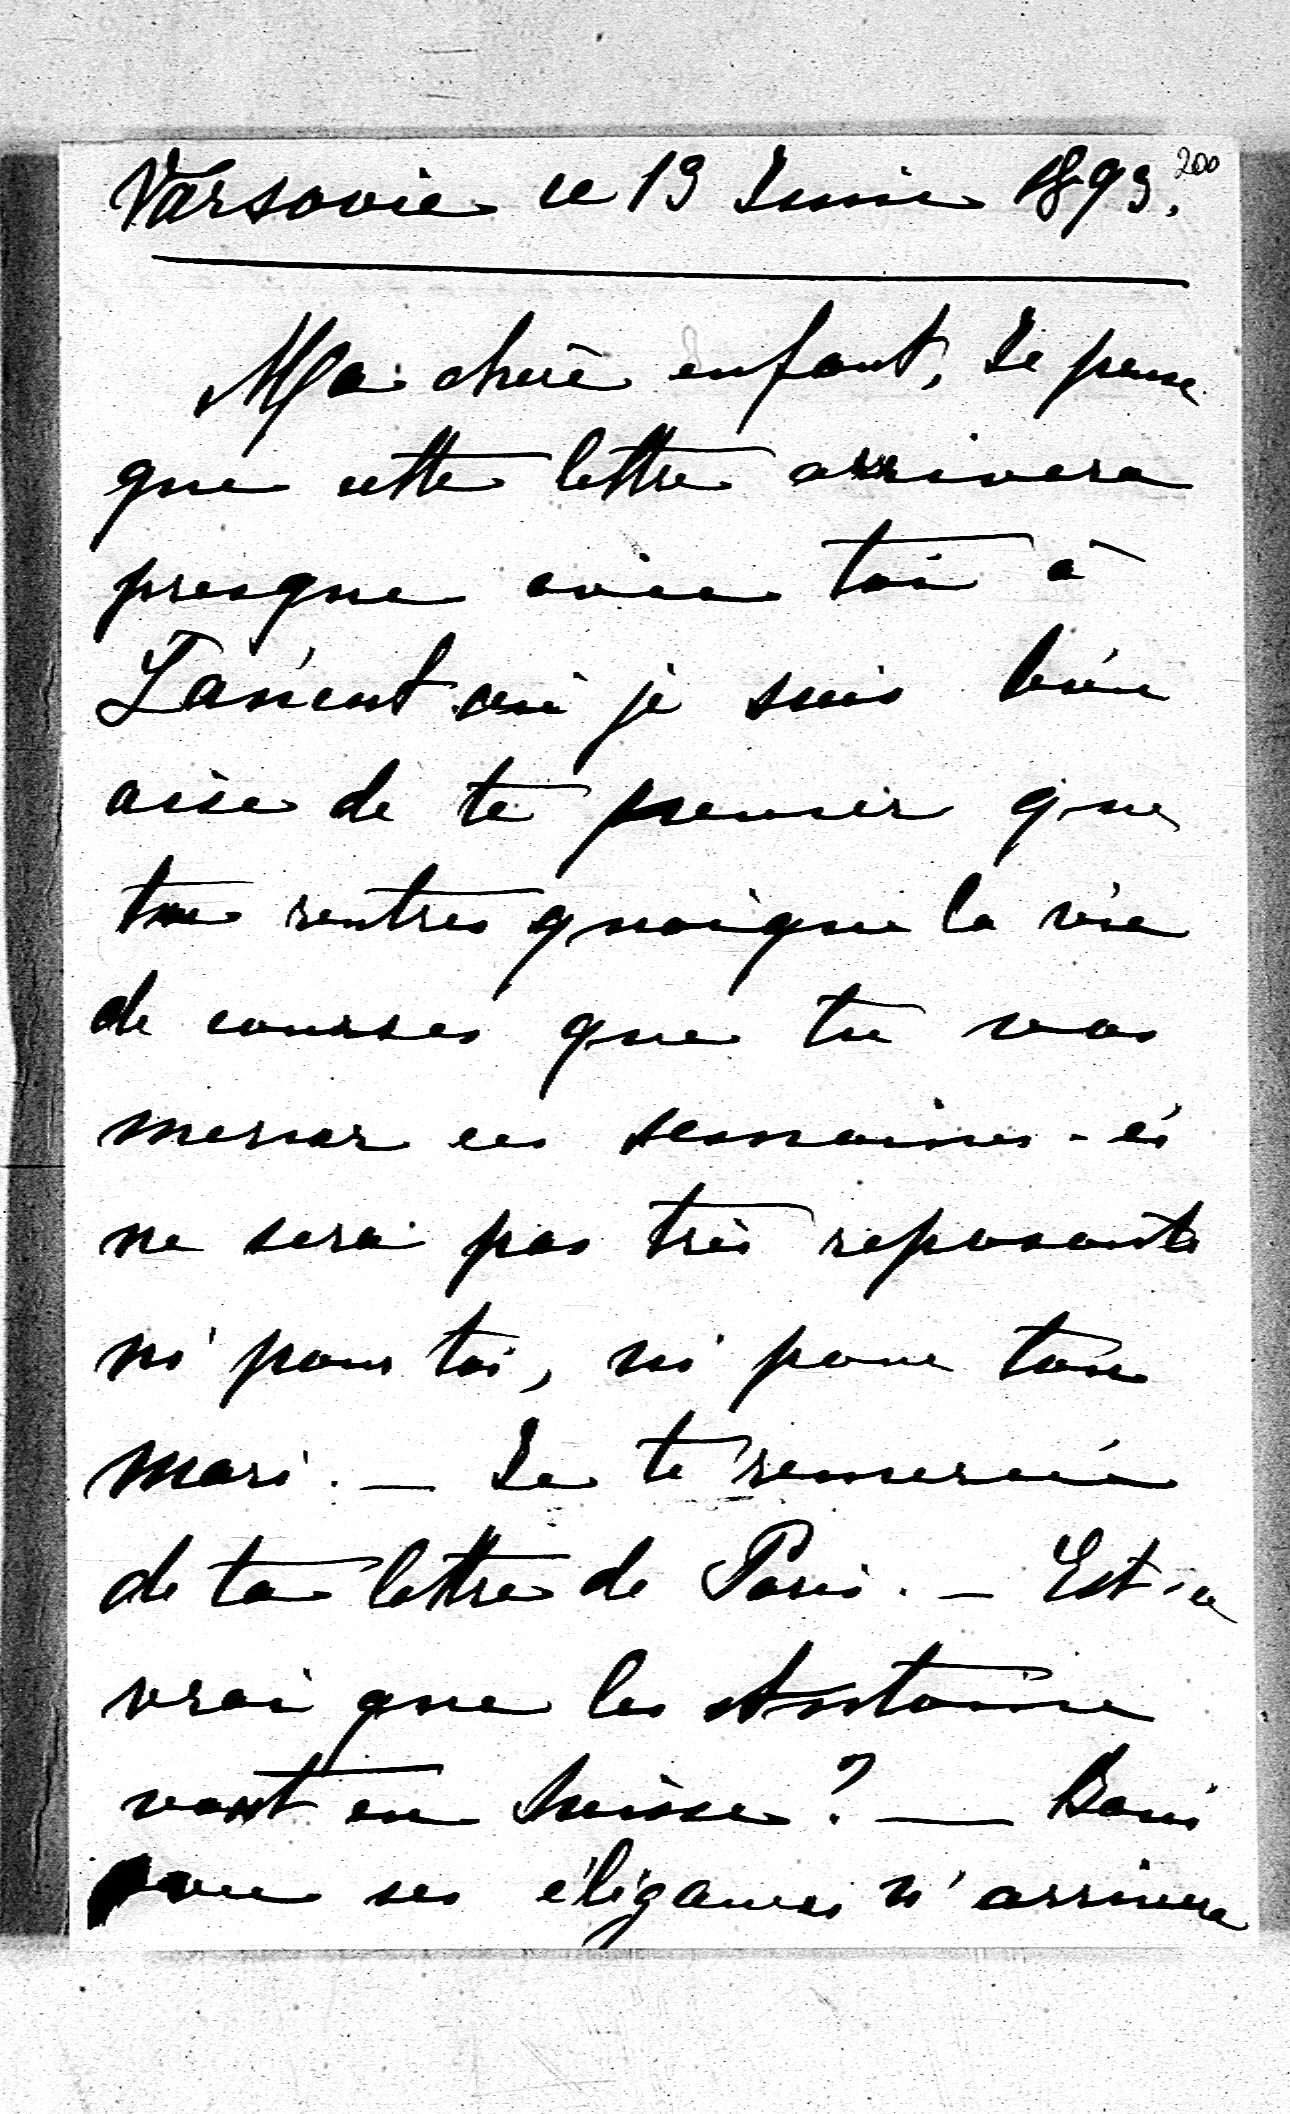 Varsovie ce 13 Juin 1893.
200
Ma chère enfant, Je pense
que cette lettre arrivera
presque avec toi à
Łańcut où je suis bien
aise de te penser que
tu rentres quoique la vie
de courses que tu vas
mener ces semaines-ci
ne sera pas très reposante
ni pour toi, ni pour ton
mari. — Je te remercie
de ta lettre de Paris. — Est-ce
vrai que les Antoine
vont en Suisse? —
avec ses élégances n'arrivera